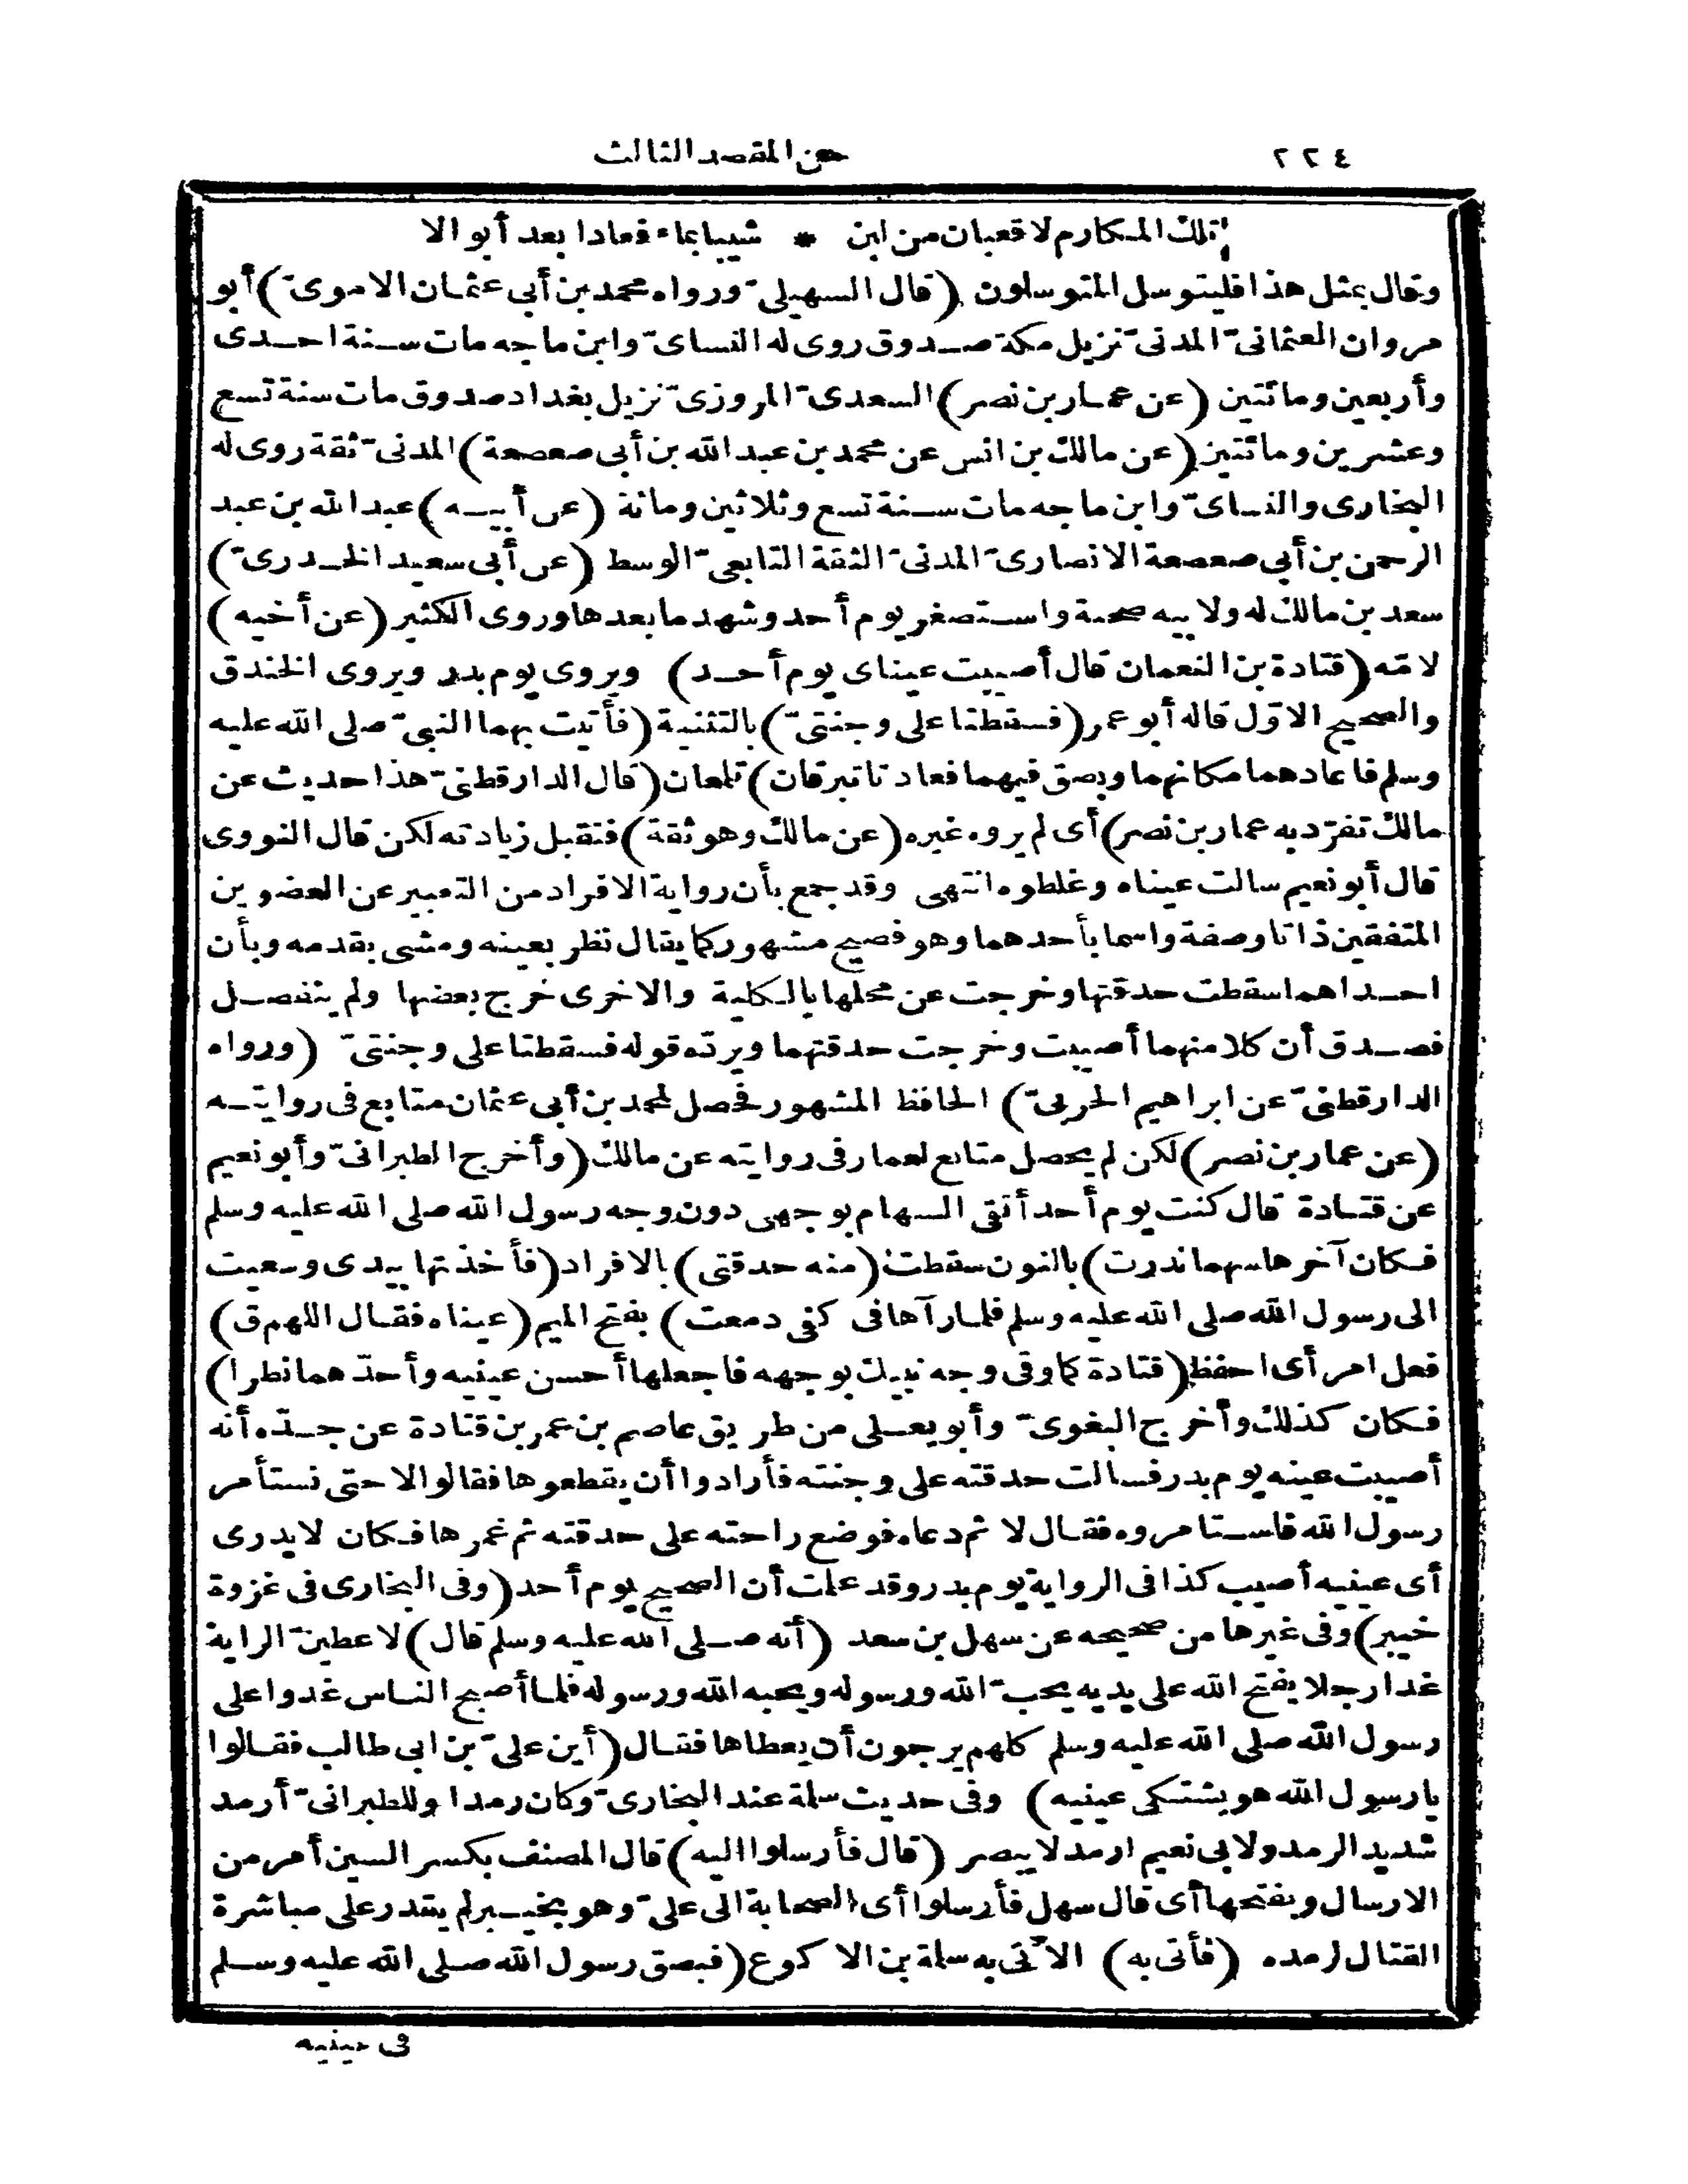 ٢٢٤
من المقصد الثالث
تلك المكارم لا قعبان من لبن * شيبا بماء فعادا بعد أبوالا
وقال بمثل هذا فليتوسل المتوسلون (قال السهيلىّ ورواه محمد بن أبى عثمان الاموىّ) أبو
مروان العثمانىّ المدنىّ نزيل مكة صدوق روى له النساىّ وابن ماجه مات سنة احدى
وأربعين ومائتين (عن عمار بن نصر) السعدىّ المروزىّ نزيل بغداد صدوق مات سنة تسع
وعشرين ومائتين (عن مالك بن انس عن محمد بن عبد الله بن أبى صعصعة) المدنىّ ثقة روى له
البخارى والنساىّ وابن ماجه مات سنة تسع وثلاثين ومائة (عن أبيه) عبد الله بن عبد
الرحمن بن أبى صعصعة الانصارىّ المدنىّ الثقة التابعىّ الوسط (عن أبى سعيد الخدرىّ)
سعد بن مالك له ولابيه صحبة واستصغر يوم أحد وشهد ما بعدها وروى الكثير (عن أخيه)
لامّه (قتادة بن النعمان قال أصيبت عيناى يوم أحد) ويروى يوم بدر ويروى الخندق
والصحيح الاوّل قاله أبو عمر (فسقطتا على وجنتىّ) بالتثنية (فأتيت بهما النبىّ صلى الله عليه
وسلم فاعادهما مكانهما وبصق فيهما فعادتا تبرقان) تلمعان (قال الدارقطنىّ هذا حديث عن
مالك تفرّد به عمار بن نصر) أى لم يروه غيره (عن مالك وهو ثقة) فتقبل زيادته لكن قال النووى
قال أبو نعيم سالت عيناه وغلطوه انتهى وقد جمع بأن رواية الافراد من التعبير عن العضوين
المتفقين ذاتا وصفة واسما بأحدهما وهو فصيح مشهور كما يقال نظر بعينه ومشى بقدمه وبأن
احداهما سقطت حدقتها وخرجت عن محلها بالكلية والاخرى خرج بعضها ولم ينفصل
فصدق أن كلا منهما أصيبت وخرجت حدقتهما ويردّه قوله فسقطتا على وجنتىّ (ورواه
الدارقطنىّ عن ابراهيم الحربىّ) الحافظ المشهور فحصل لمحمد بن أبى عثمان متابع فى روايته
(عن عمار بن نصر) لكن لم يحصل متابع لعمار فى روايته عن مالك (وأخرج الطبرانىّ وأبو نعيم
عن قتادة قال كنت يوم أحد أتقى السهام بوجهى دون وجه رسول الله صلى الله عليه وسلم
فكان آخرها سهما ندرت) بالنون سقطت (منه حدقتى) بالافراد (فأخذتها بيدى وسعيت
الى رسول الله صلى الله عليه وسلم فلما رآها فى كفى دمعت) بفتح الميم (عيناه فقال اللهم ق)
فعل امر أى احفظ (قتادة كما وقى وجه نبيك بوجهه فاجعلها أحسن عينيه وأحدّهما نظرا)
فكان كذلك وأخرج البغوىّ وأبو يعلى من طريق عاصم بن عمر بن قتادة عن جدّه أنه
أصيبت عينه يوم بدر فسالت حدقته على وجنته فأرادوا أن يقطعوها فقالوا لا حتى نستأمر
رسول الله فاستامروه فقال لا ثم دعاه فوضع راحته على حدقته ثم غمرها فكان لا يدرى
أى عينيه أصيب كذا فى الرواية يوم بدر وقد علمت أن الصحيح يوم أحد (وفى البخارى فى غزوة
خيبر) وفى غيرها من صحيحه عن سهل بن سعد (أنه صلى الله عليه وسلم قال) لاعطينّ الراية
غدا رجلا يفتح الله على يديه يحبّ الله ورسوله ويحبه الله ورسوله فلما أصبح الناس غدوا على
رسول الله صلى الله عليه وسلم كلهم يرجون أن يعطاها فقال (أين علىّ بن ابى طالب فقالوا
يا رسول الله هو يشتكى عينيه) وفى حديث سلمة عند البخارىّ وكان رمدا وللطبرانىّ أرمد
شديد الرمد ولابى نعيم ارمد لا يبصر (قال فأرسلوا اليه) قال المصنف بكسر السين أمر من
الارسال وبفتحها أى قال سهل فأرسلوا أى الصحابة الى علىّ وهو بخيبر لم يقدر على مباشرة
القتال لرمده (فأتى به) الآتى به سلمة بن الاكوع (فبصق رسول الله صلى الله عليه وسلم
فى عينيه